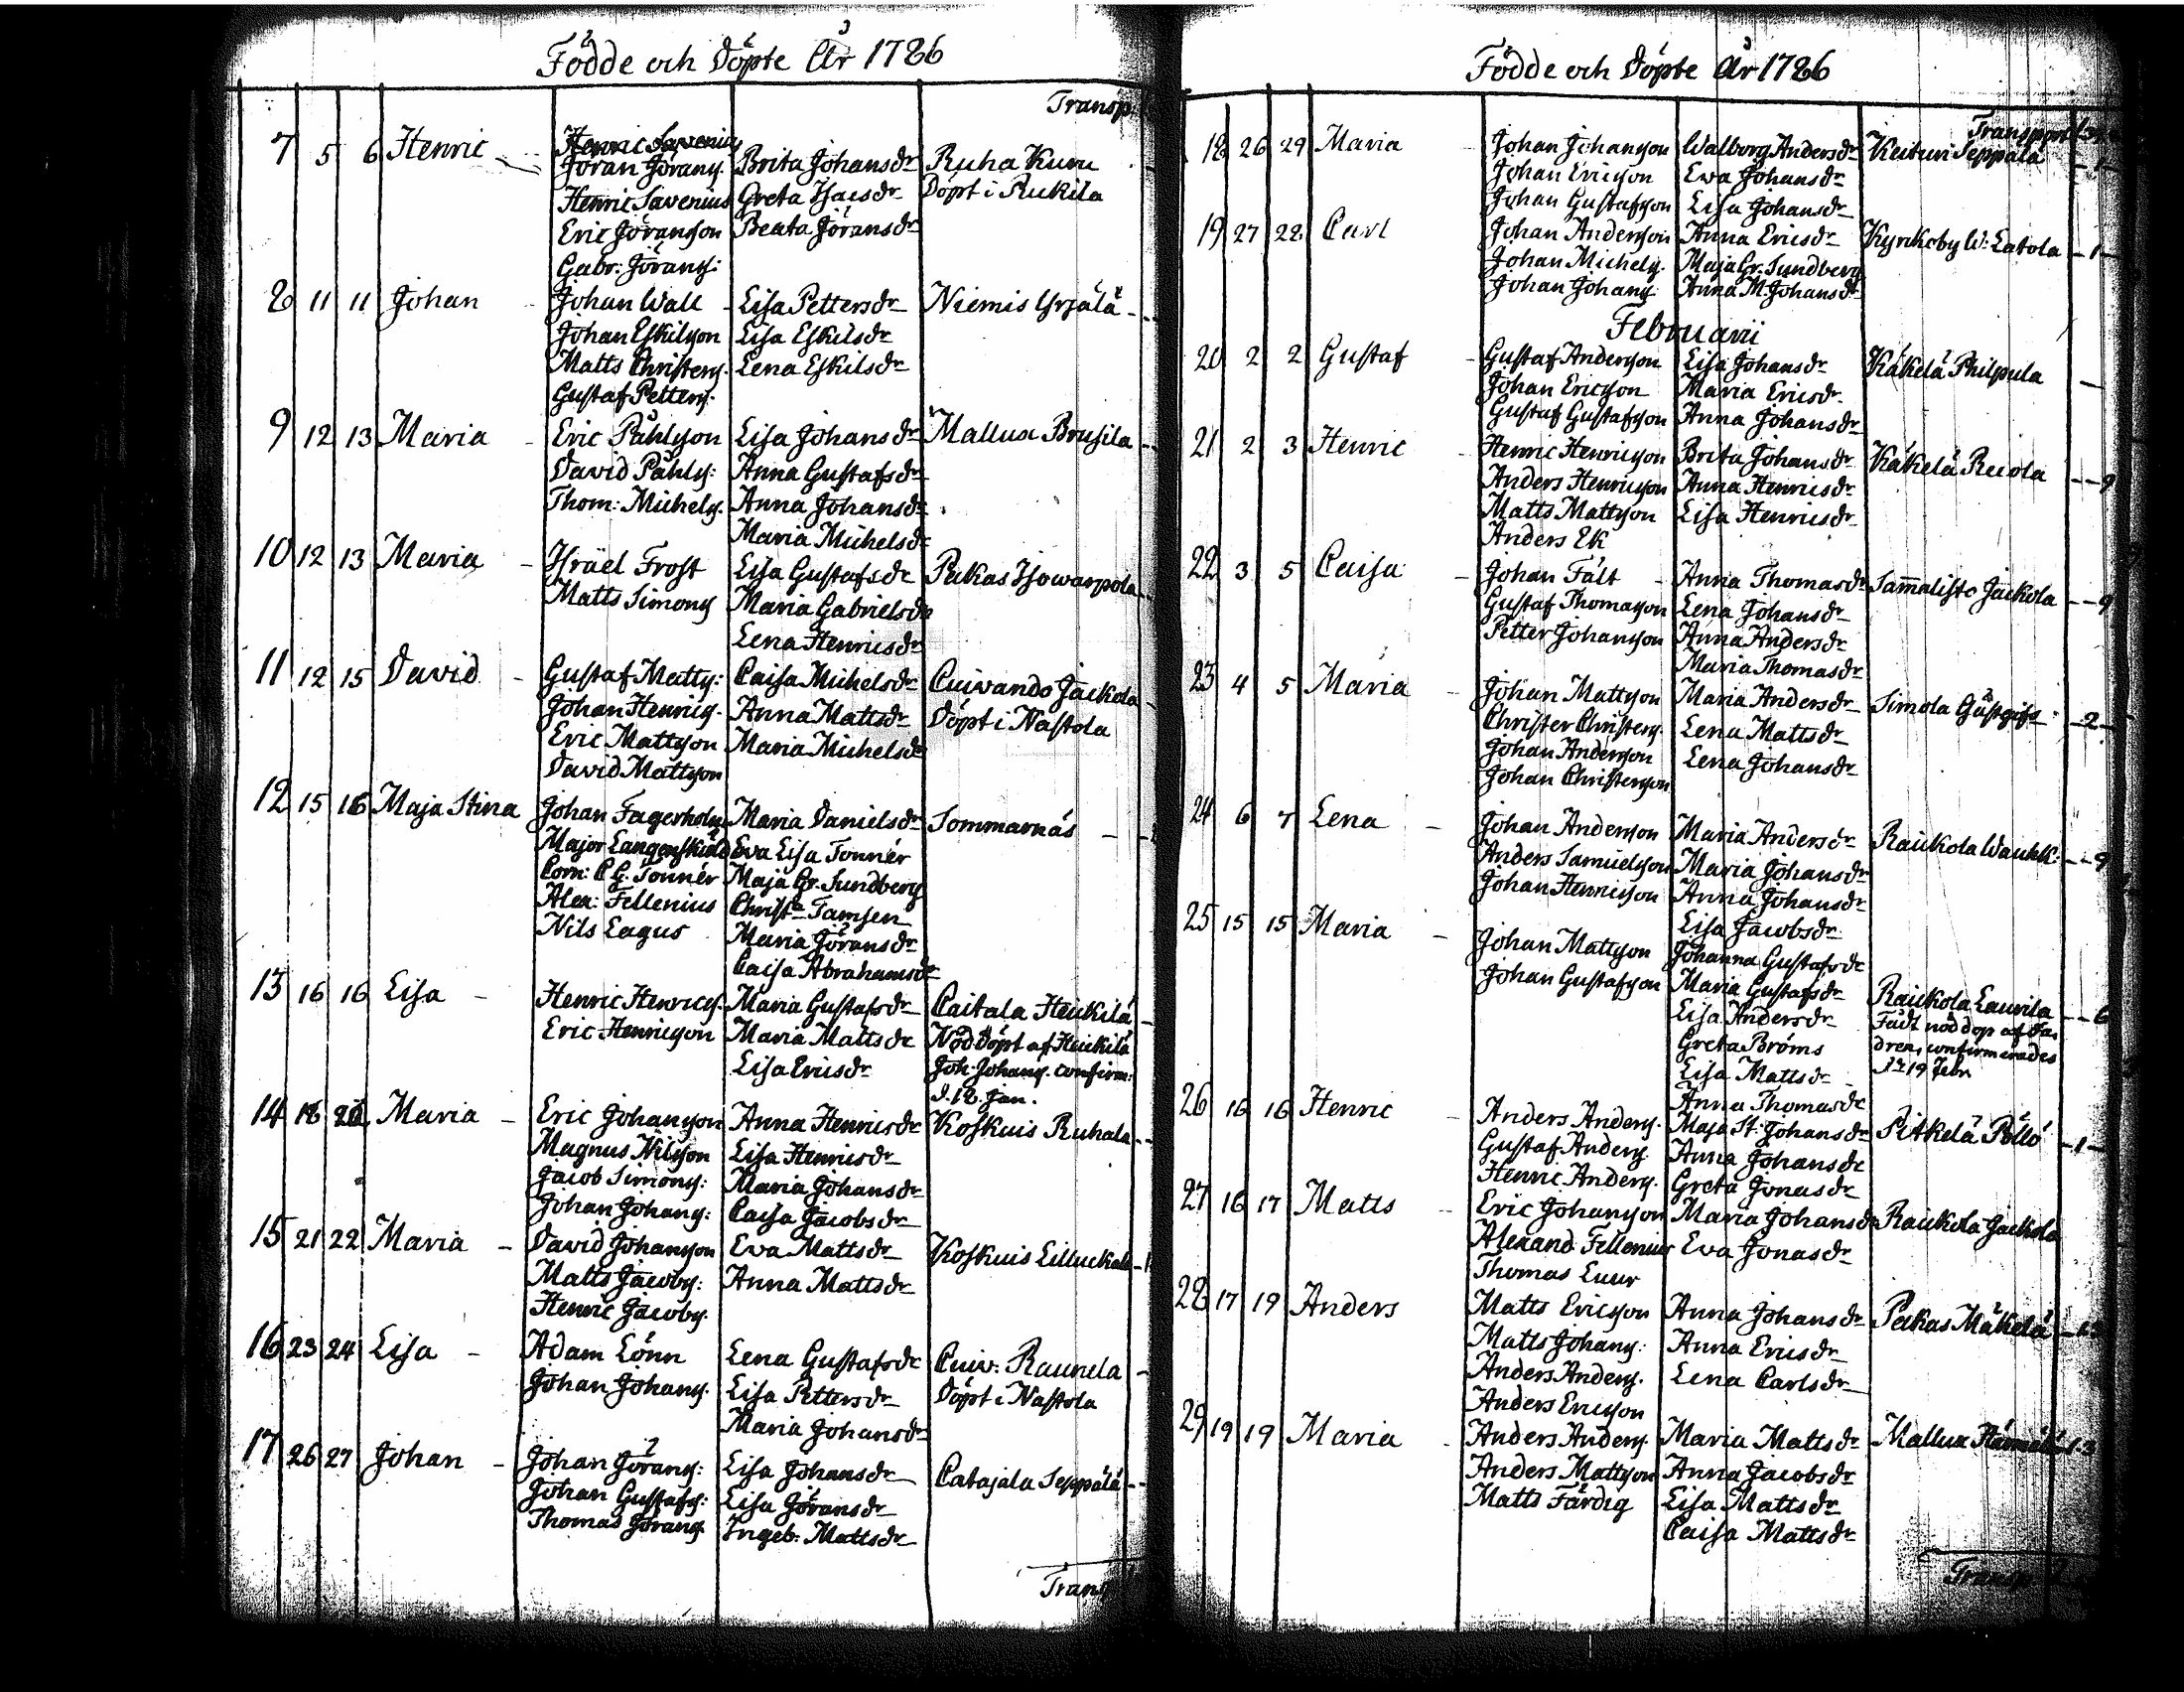 Födde och Döpte År 1786
Transp:
7 5 6 Henric Henric Savenius
Jöran Jörans. Brita Johansdr Ruha Kuru
Henric Savenius Greta Isacsdr Döpt i Rukila
Eric Jöransson Beata Jöransdr
Gabr: Jörans:
8 11 11 Johan Johan Wall Lisa Pettersdr Niemis Yrjälä
Johan Eskilsson Lisa Eskilsdr
Matts Christers. Lena Eskilsdr
Gustaf Petters.
9 12 13 Maria Eric Påhlsson Lisa Johansdr Mallux Brusila
David Påhls: Anna Gustafsdr
Thom: Michels. Anna Johansdr
Maria Michelsdr
10 12 13 Maria Israel Frost Lisa Gustafsdr Pakas Isowarpola
Matts Simons Maria Gabrielsdr
Lena Henricsdr
11 12 15 David Gustaf Matts: Caisa Michelsdr Cuivando Jäckola
Johan Henrics. Anna Mattsdr Döpt i Nastola
Eric Mattsson Maria Michelsdr
David Mattsson
12 15 16 Maja Stina Johan Fagerholm Maria Danielsdr Sommarnäs
Major Langenskiöld Eva Lisa Tonnér
Corn: C G: Tonnér Maja Gr. Sundberg
Alex: Fellenius Christa Tamsen
Nils Lagus Maria Jöransdr
Caisa Abrahamsdr
13 16 16 Lisa Henric Henrics. Maria Gustafsdr Caitala Heickilä
Eric Henricsson Maria Mattsdr Nöd Döpt af Heickilä
Lisa Ericsdr Joh: Johans. confirm:
d. 18. Jan.
14 18 Maria Eric Johansson Anna Henricsdr Koskuis Ruhala
Magnus Nilsson Lisa Henricsdr
Jacob Simons: Maria Johansdr
Johan Johans: Caisa Jacobsdr
15 21 22 Maria David Johansson Eva Mattsdr Koskuis Lilluckala
Matts Jacobs: Anna Mattsdr
Henric Jacobs.
16 23 24 Lisa Adam Lönn Lena Gustafsdr Cuiv: Raunela
Johan Johans. Lisa Pettersdr Döpt i Nastola
Maria Johansdr
17 26 27 Johan Johan Jörans: Lisa Johansdr Catajala Seppälä
Johan Gustafs: Lisa Jöransdr
Thomas Jörans. Ingeb: Mattsdr
Transp
Födde och Döpte År 1786
Transport
18 26 29 Maria Johan Johansson Walborg Andersdr Keituri Seppälä 1
Johan Ericsson Ewa Johansdr
Johan Gustafsson Lisa Johansdr
19 27 28 Carl Johan Andersson Anna Ericsdr Kyrckoby W: Latola 1
Johan Michels. Maja Gr. Sundberg
Johan Johans Anna M. Johansdr
Februarii
20 2 2 Gustaf Gustaf Andersson Lisa Johansdr Käkelä Philpula
Johan Ericsson Maria Ericsdr
Gustaf Gustafsson Anna Johansdr
21 2 3 Henric Henric Henricsson Brita Johansdr Käkelä Recola 9
Anders Henricsson Anna Henricsdr
Matts Mattsson Lisa Henricsdr
Anders Ek
22 3 5 Caisa Johan Fält Anna Thomasdr Sammalisto Jäckola 9
Gustaf Thomasson Lena Johansdr
Petter Johansson Anna Andersdr
Maria Thomasdr
23 4 5 Maria Johan Mattsson Maria Andersdr Simola Gästgifs 2
Christer Christers. Lena Mattsdr
Johan Andersson Lena Johansdr
Johan Christersson
24 6 7 Lena Johan Andersson Maria Andersdr Raickola Wauhk: 9
Anders Samuelsson Maria Johansdr
Johan Henricsson Anna Johansdr
Lisa Jacobsdr
25 15 15 Maria Johan Mattsson Johanna Gustafsdr
Johan Gustafsson Maria Gustafsdr Raickola Laurila 6
Lisa Andersdr Fådt nöddop af Fa
Greta Broms dren, confirmerades
Lisa Mattsdr d. 19 Febr
Anna Thomasdr
26 16 16 Henric Anders Anders. Maja St: Johansdr Pitkelä Pöllö 1
Gustaf Anders Anna Johansdr
Henric Anders. Greta Jonasdr
27 16 17 Matts Eric Johansson Maria Johansdr Raickola Jackola
Alexand: Fellenius Eva Jonasdr
Thomas Luur
28 17 19 Anders Matts Ericsson Anna Johansdr Pakas Mäkelä
Matts Johans: Anna Ericsdr
Anders Anders. Lena Carlsdr
Anders Ericsson
29 19 19 Maria Anders Anders. Maria Mattsdr Mallux
Anders Mattsson Anna Jacobsdr
Matts Färdig Lisa Mattsdr
Caisa Mattsdr
Transp